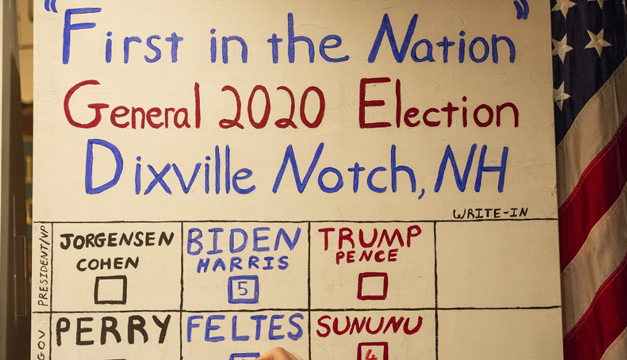 "First in the Nation"
General 2020 Election
Dixville Notch, NH
WRITE-IN
PRESIDENT/VP
JORGENSEN
COHEN
BIDEN
HARRIS
5
TRUMP
PENCE
GOV.
PERRY
FELTES
SUNUNU
4